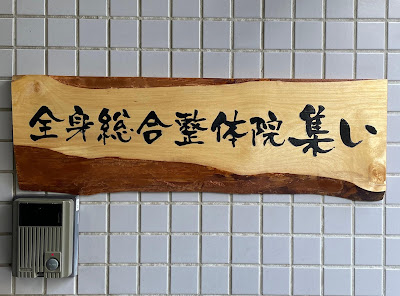 全身総合整体院集い